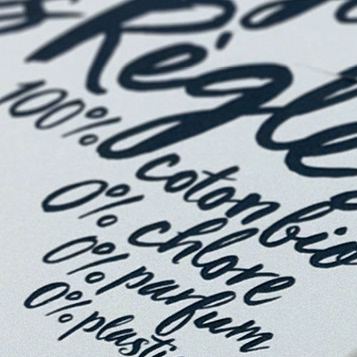 Règle
100% coton bio
0% chlore
0% parfum
0% plasti